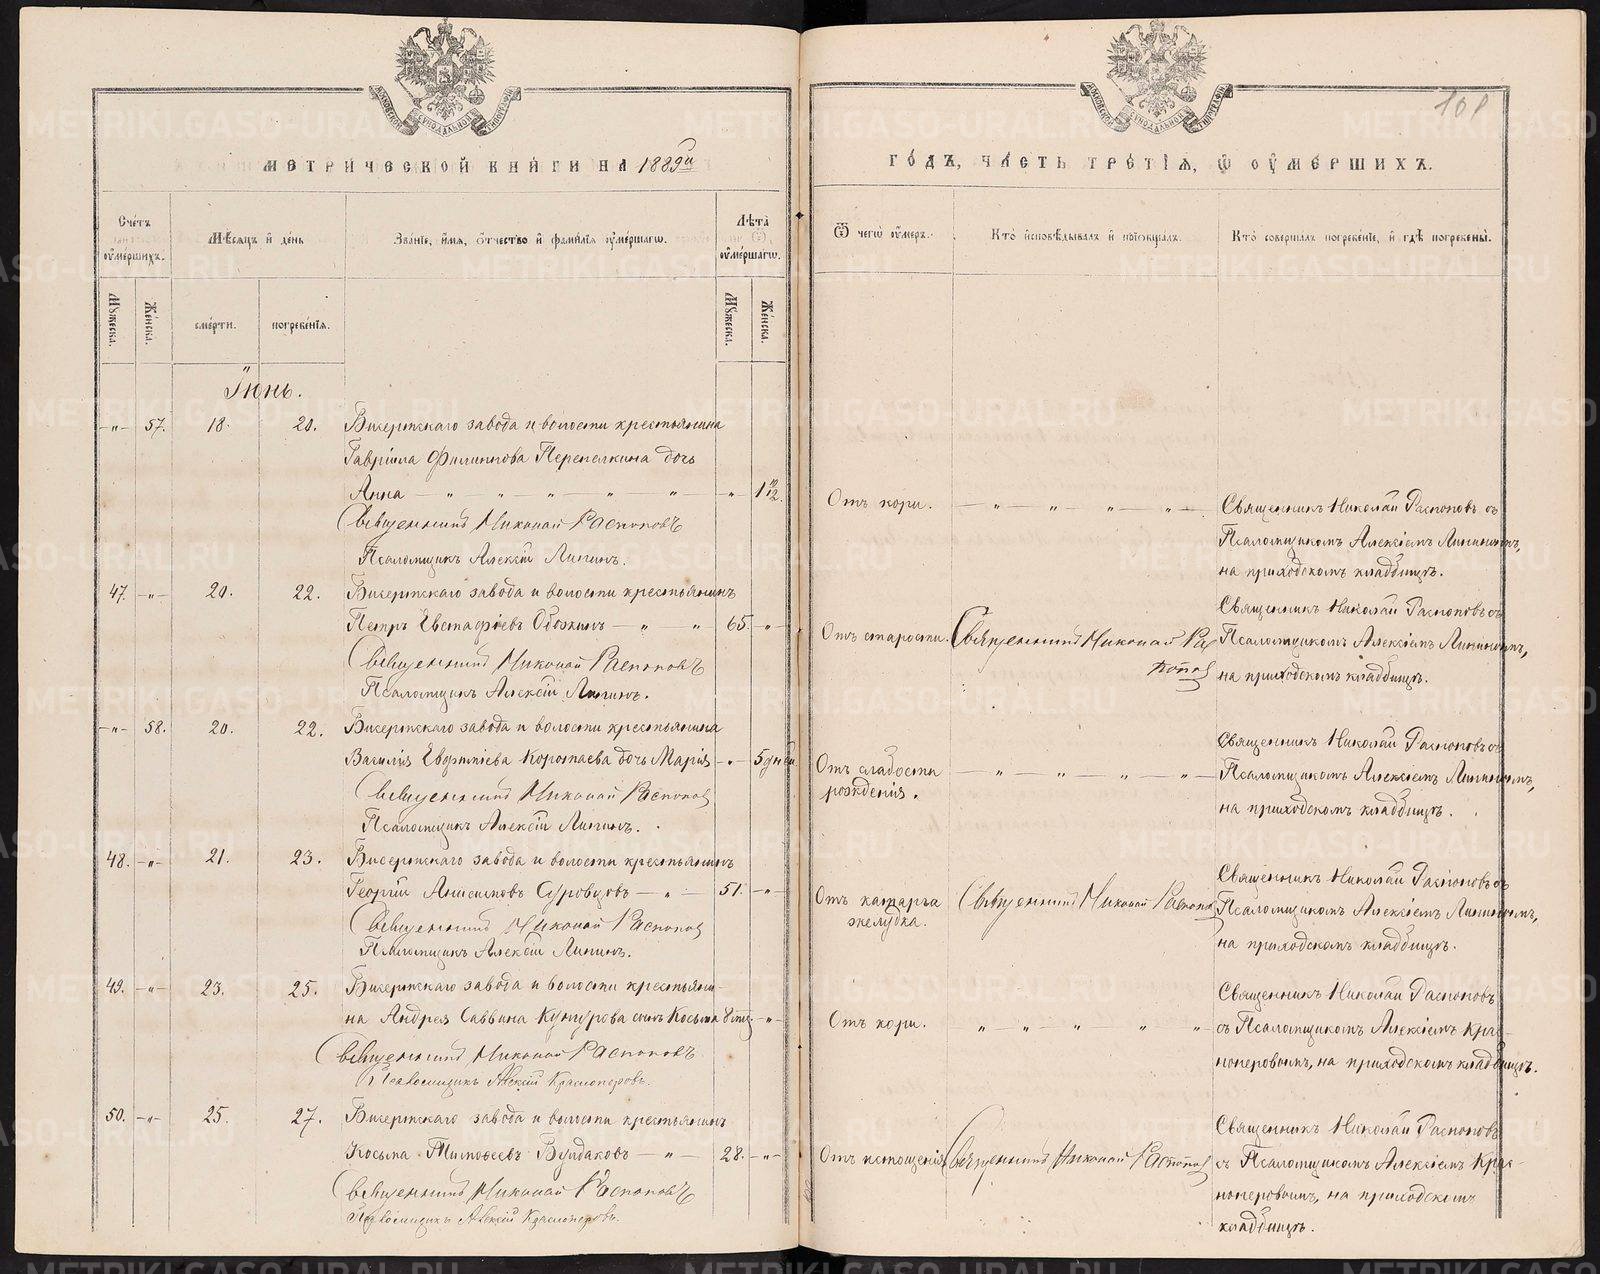 МОСКОВСКОЙ СѴНОДАЛЬНОЙ ТИПОГРАФІИ
МЕТРИ́ЧЕСКОЙ КНИ́ГИ НА 1889й
Сче́тъ ᲂу҆ме́ршихъ.
Мѣ́сяцъ и҆ де́нь
Зва́нїе, и҆́мя, ѻ҆́тчество и҆ фами́лїя ᲂу҆ме́ршагѡ.
Лѣ́та ᲂу҆ме́ршагѡ.
Мꙋ́жеска.
Же́нска.
сме́рти.
погребе́нїя.
Мꙋ́жеска.
Же́нска.
Іюнь.
-"- 57. 18. 20. Бисертскаго завода и волости крестьянина
Гавріила Филиппова Перепелкина дочь
Анна — " — " — " — " — " - " - 1 10/12.
Священникъ Николай Распоповъ
Псаломщикъ Алексій Липинъ.
47. -"- 20. 22. Бисертскаго завода и волости крестьянинъ
Петръ Евстафіевъ Обожинъ — " — " 65. -"-
Священникъ Николай Распоповъ
Псаломщикъ Алексій Липинъ.
-"- 58. 20. 22. Бисертскаго завода и волости крестьянина
Василія Евфиміева Коротаева дочь Марія -"- 5 дней
Священникъ Николай Распопов
Псаломщикъ Алексій Липинъ.
48. -"- 21. 23. Бисертскаго завода и волости крестьянинъ
Георгій Анисимовъ Суровцовъ — " — 51. -"-
Священникъ Николай Распопов
Псаломщикъ Алексій Липинъ.
49. -"- 23. 25. Бисертскаго завода и волости крестьяни-
на Андрея Саввина сынъ Косьма 8 мѣс. -"-
Священникъ Николай Распоповъ
Псаломщикъ Алексій Красноперовъ.
50. -"- 25. 27. Бисертскаго завода и волости крестьянинъ
Косьма Тимоѳеевъ Булдаковъ — " — 28. -"-
Священникъ Николай Распоповъ
Псаломщикъ Алексій Красноперовъ.
МОСКОВСКОЙ СѴНОДАЛЬНОЙ ТИПОГРАФІИ
101
ГО́ДЪ, ЧА́СТЬ ТРЕ́ТЇЯ, Ѡ҆ ОУ҆МЕ́РШИХЪ.
Ѿ чегѡ̀ ᲂу҆́меръ.
Кто̀ и҆сповѣ́дывалъ и҆ прїѡбща́лъ.
Кто̀ соверша́лъ погребе́нїе, и҆ гдѣ̀ погребены̀.
Отъ кори. — " — " — " — " —
Священникъ Николай Распоповъ съ
Псаломщикомъ Алексіемъ Липинымъ,
на приходскомъ кладбищѣ.
Отъ старости. Священникъ Николай Рас
попов
Священникъ Николай Распоповъ съ
Псаломщикомъ Алексіемъ Липинымъ,
на приходскомъ кладбищѣ.
Отъ слабости
рожденія. — " — " — " — " —
Священникъ Николай Распоповъ съ
Псаломщикомъ Алексіемъ Липинымъ,
на приходскомъ кладбищѣ.
Отъ катарра
желудка.
Священникъ Николай Распопов
Священникъ Николай Распоповъ съ
Псаломщикомъ Алексіемъ Липинымъ,
на приходскомъ кладбищѣ.
Отъ кори. " — " — " — " — "
Священникъ Николай Распоповъ
съ Псаломщикомъ Алексіемъ Крас-
ноперовымъ, на приходскомъ кладбищѣ.
Отъ истощенія. Священникъ Николай Распопов
Священникъ Николай Распоповъ
съ Псаломщикомъ Алексіемъ Крас-
ноперовымъ, на приходскомъ
кладбищѣ.
METRIKI.GASO-URAL.RU